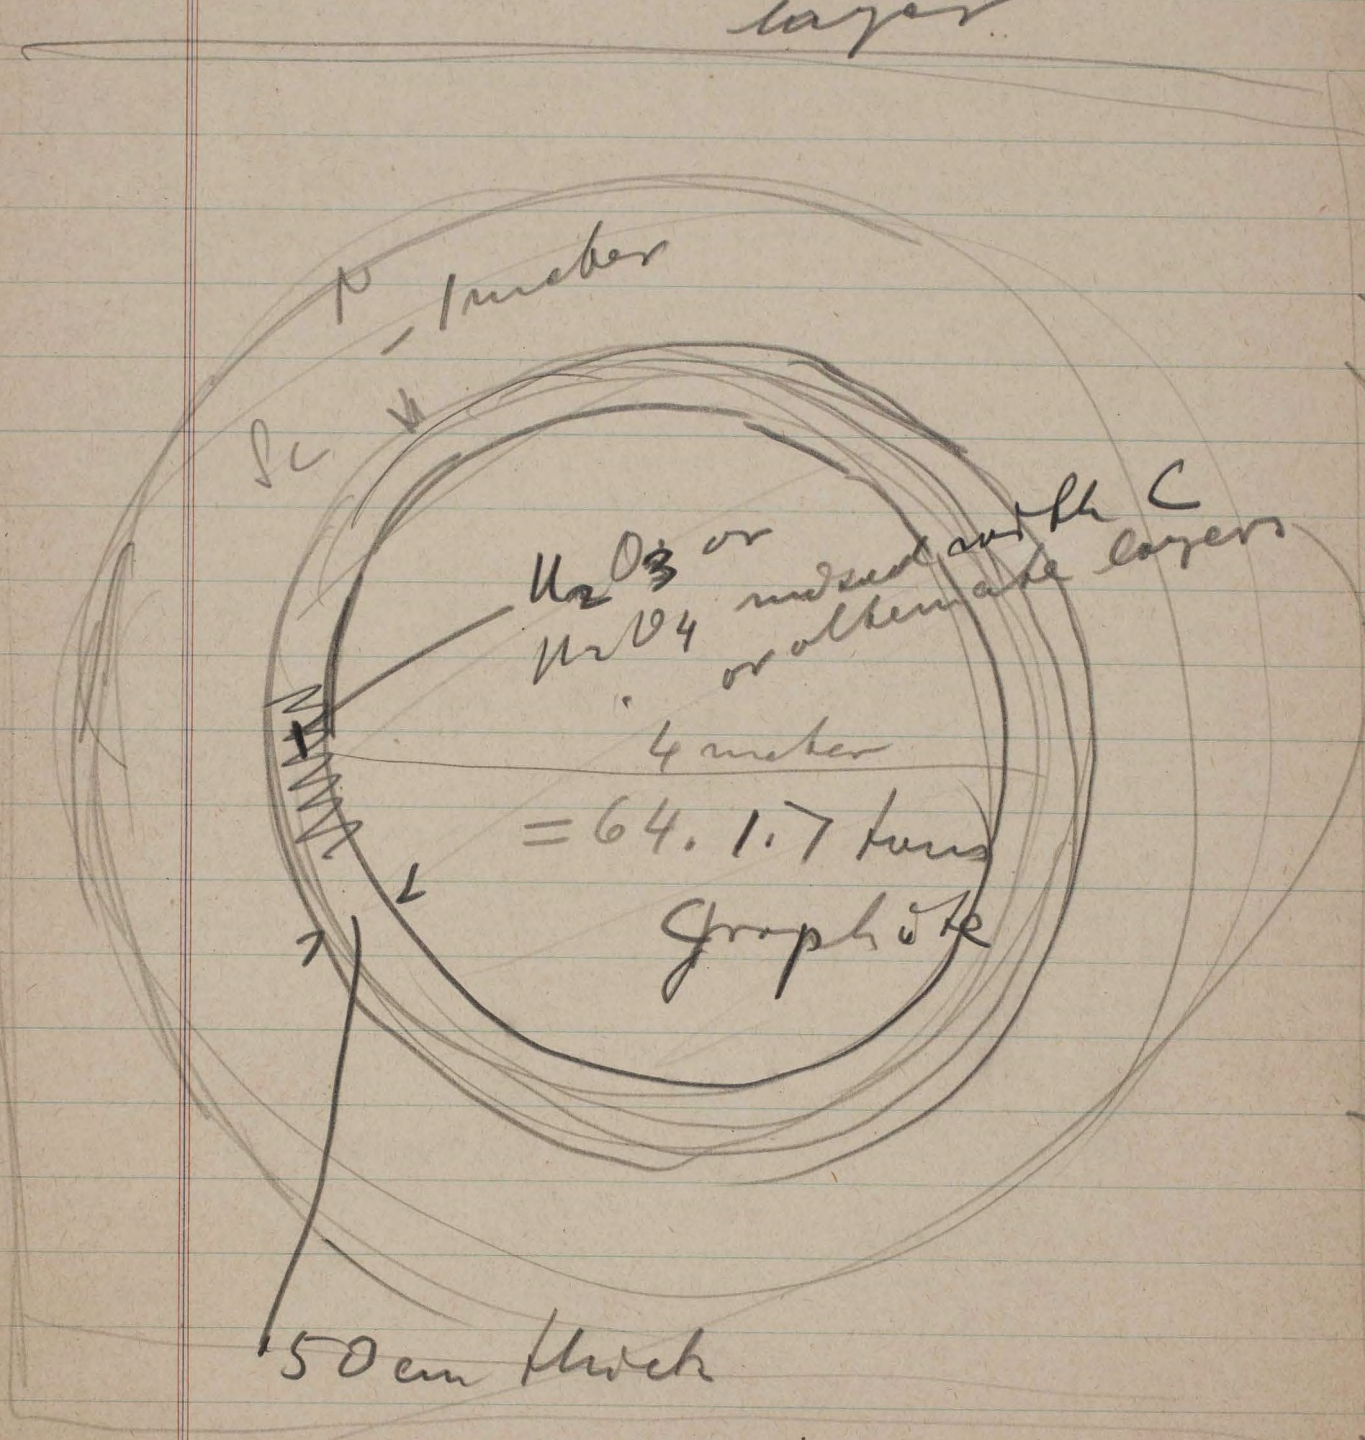 layer
1 meter
U2O3 or
U2O4 mixed with C
or alternate layers
4 meter
= 64. 1.7 tons
Graphite
50 cm thick